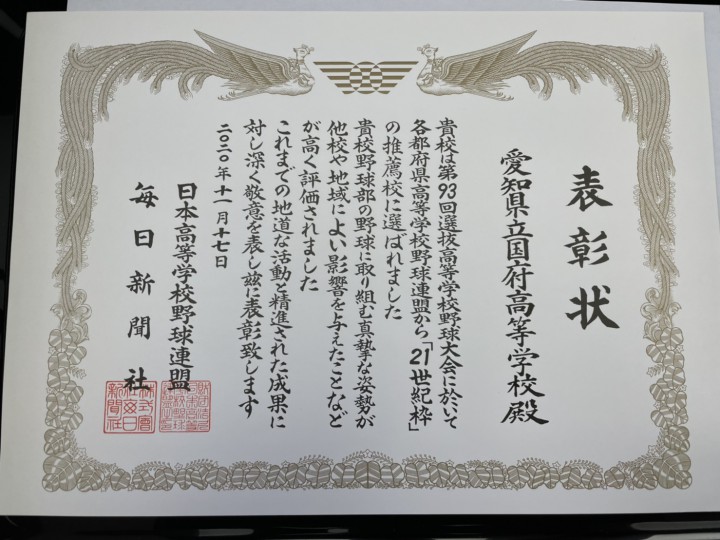 表彰状
愛知県立国府高等学校殿
貴校は第93回選抜高等学校野球大会に於いて
各都府県高等学校野球連盟から「21世紀枠」
の推薦校に選ばれました
貴校野球部の野球に取り組む真摯な姿勢が
他校や地域によい影響を与えたことなど
が高く評価されました
これまでの地道な活動と精進された成果に
対し深く敬意を表し茲に表彰致します
二〇二〇年十一月十七日
日本高等学校野球連盟
毎日新聞社